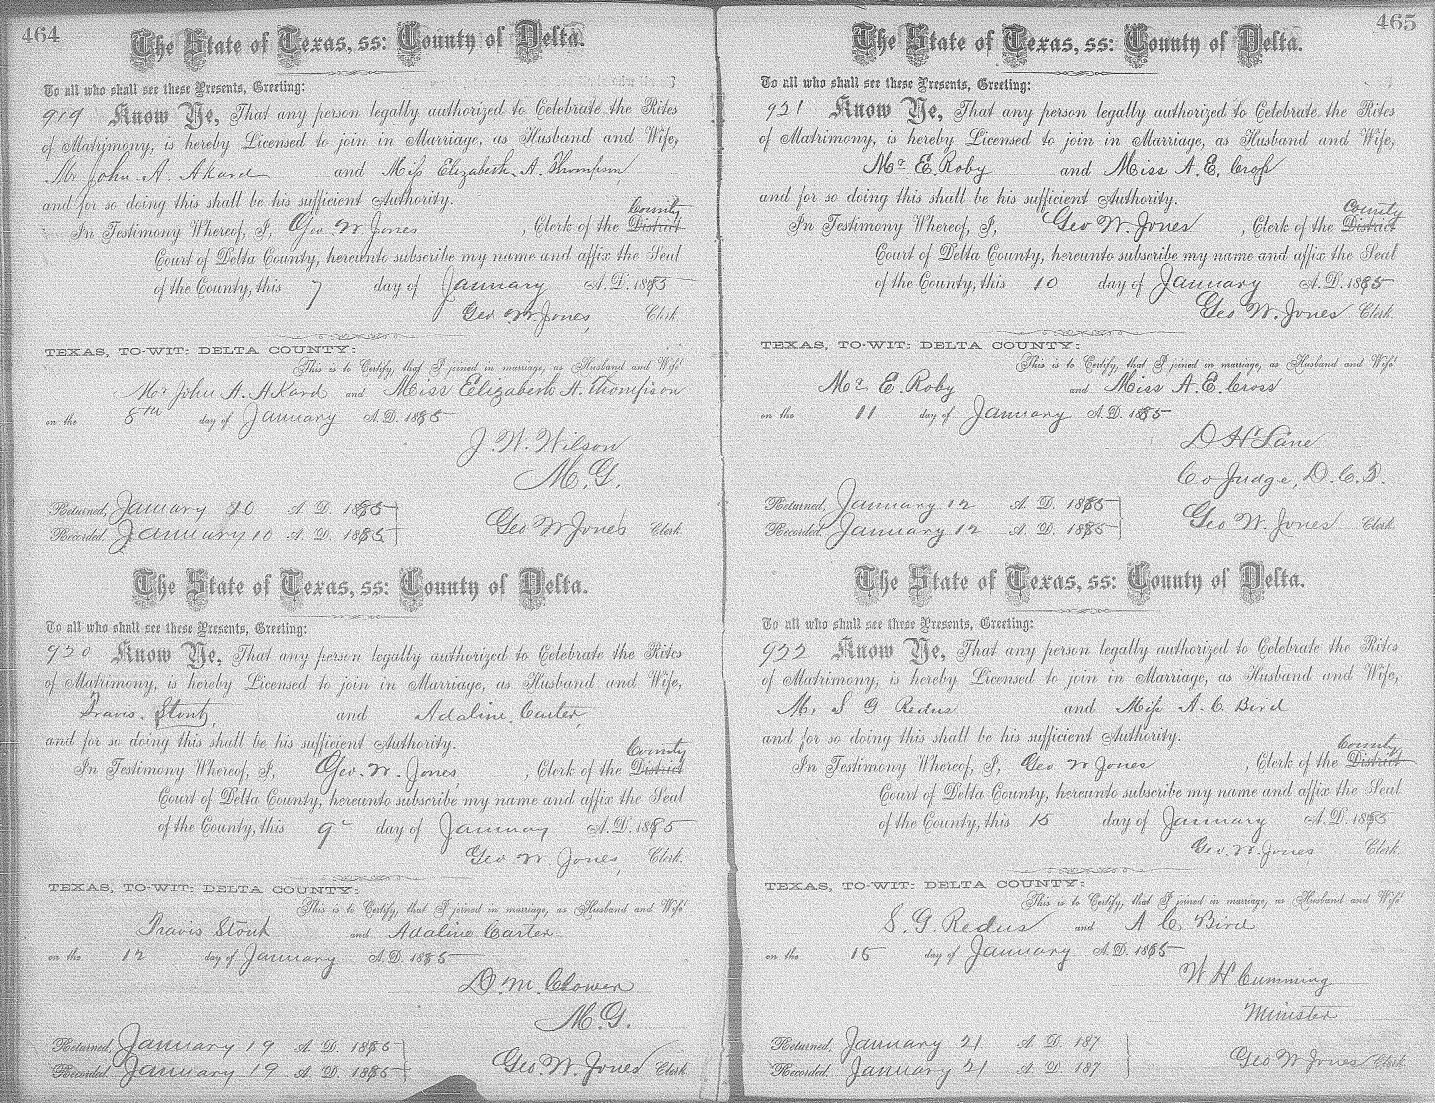 464
The State of Texas, ss: County of Delta.
To all who shall see these Presents, Greeting:
919 Know Ye, That any person legally authorized to Celebrate the Rites
of Matrimony, is hereby Licensed to join in Marriage, as Husband and Wife,
Mr John A. Akard and Miss Elizabeth A. Thompson
and for so doing this shall be his sufficient Authority.
County
In Testimony Whereof, I, Geo. W Jones, Clerk of the District
Court of Delta County, hereunto subscribe my name and affix the Seal
of the County, this 7 day of January A.D. 1885
Geo W Jones, Clerk
TEXAS, TO-WIT: DELTA COUNTY:
This is to Certify, that I joined in marriage, as Husband and Wife
Mr John A. Akard and Miss Elizabeth A. Thompson
on the 8th day of January A.D. 1885
J. W. Wilson
M. G.
Returned, January 10 A. D. 1885
Recorded. January 10 A. D. 1885 Geo W Jones Clerk
The State of Texas, ss: County of Delta.
To all who shall see these Presents, Greeting:
920 Know Ye, That any person legally authorized to Celebrate the Rites
of Matrimony, is hereby Licensed to join in Marriage, as Husband and Wife,
Travis Stout, and Adaline Carter,
and for so doing this shall be his sufficient Authority.
County
In Testimony Whereof, I, Geo. W. Jones, Clerk of the District
Court of Delta County, hereunto subscribe my name and affix the Seal
of the County, this 9 day of January A.D. 1885
Geo W Jones, Clerk.
TEXAS, TO-WIT: DELTA COUNTY:
This is to Certify, that I joined in marriage, as Husband and Wife
Travis Stout and Adaline Carter
on the 12 day of January A.D. 1885
D. M. Clower
M. G.
Returned, January 19 A. D. 1885
Recorded. January 19 A. D. 1885 Geo. W. Jones Clerk
465
The State of Texas, ss: County of Delta.
To all who shall see these Presents, Greeting:
921 Know Ye, That any person legally authorized to Celebrate the Rites
of Matrimony, is hereby Licensed to join in Marriage, as Husband and Wife,
Mr E. Roby and Miss A. E. Cross
and for so doing this shall be his sufficient Authority.
County
In Testimony Whereof, I, Geo W. Jones, Clerk of the District
Court of Delta County, hereunto subscribe my name and affix the Seal
of the County, this 10 day of January A.D. 1885
Geo W. Jones Clerk.
TEXAS, TO-WIT: DELTA COUNTY:
This is to Certify, that I joined in marriage, as Husband and Wife
Mr E. Roby and Miss A. E. Cross
on the 11 day of January A.D. 1885
D H Lane
Co Judge, D. C. T.
Returned, January 12 A. D. 1885
Recorded. January 12 A. D. 1885 Geo W. Jones Clerk.
The State of Texas, ss: County of Delta.
To all who shall see these Presents, Greeting:
922 Know Ye, That any person legally authorized to Celebrate the Rites
of Matrimony, is hereby Licensed to join in Marriage, as Husband and Wife,
Mr S G Redus and Miss A. C Bird
and for so doing this shall be his sufficient Authority.
County
In Testimony Whereof, I, Geo W Jones, Clerk of the District
Court of Delta County, hereunto subscribe my name and affix the Seal
of the County, this 15 day of January A.D. 1885
Geo. W. Jones Clerk.
TEXAS, TO-WIT: DELTA COUNTY:
This is to Certify, that I joined in marriage, as Husband and Wife
S. G. Redus and A C Bird
on the 15 day of January A.D. 1885
W H Cumming
Minister
Returned, January 21 A. D. 187
Recorded. January 21 A. D. 187 Geo W Jones Clerk